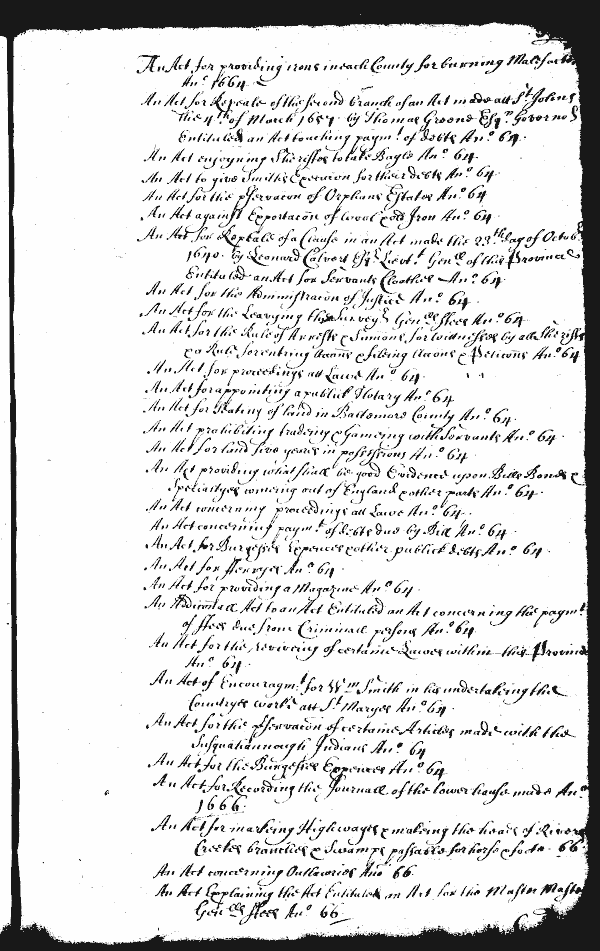 An Act for providing irons in each County for burning Malefact
An:o 1664
An Act for Repeale of the second branch of an Act made att S:t Johns
the 4:th of March 1657 by Thomas Greene Esq:r Governo:r
Entituled an Act touching paym:t of debts An:o 64
An Act enjoyning Sheriffes to take Bayle An:o 64
An Act to give Smiths Execucon for their debts An:o 64
An Act for the pservacon of Orphans Estates An:o 64
An Act against Exportacon of wool & old Iron An:o 64
An Act for Repeale of a Clause in an Act made the 23:th day of Octob
1640 by Leonard Calvert Esq:r Lievt: Gen:ll of this Province
Entituled an Act for Servants Cloathes An:o 64
An Act for the Administracon of Justice An:o 64
An Act for the Leavying the Survey:r Gen:lls ffees An:o 64
An Act for the Rule of Arrests & Sumons for witnesses by all Sheriffs
& a Rule for entring accons & fileing accons & Peticons An:o 64
An Act for proceedings att Lawe An:o 64
An Act for appointing a publick Notary An:o 64
An Act for Seating of land in Baltemore County An:o 64
An Act prohibiting tradeing & Gameing with Servants An:o 64
An Act for land five years in possession An:o 64
An Act providing what shall be good Evidence upon Bills Bonds &
Specialtyes comeing out of England & other parts An:o 64
An Act concerning proceedings att Lawe An:o 64
An Act concerning paym:t of debts due by Bill An:o 64
An Act for Burgesses Expences & other publick debts An:o 64
An Act for fferryes An:o 64
An Act for providing a Magazine An:o 64
An Additionall Act to an Act Entituled an Act concerning the paym:t
of ffees due from Criminall persons An:o 64
An Act for the reviveing of certaine Lawes within this Province
An:o 64
An Act of Encouragm:t for W:m Smith in his undertaking the
Countryes worke att S:t Maryes An:o 64
An Act for the pservacon of certaine Articles made with the
Susquahannough Indians An:o 64
An Act for the Burgesses Expences An:o 64
An Act for Recording the Journall of the lower house made An:o
1666
An Act for marking Highwayes & making the heads of Rivers
Creekes branches & Swamps passable for horse & foote 66
An Act concerning Outlawries An:o 66
An Act Explaining the Act Entituled an Act for the Master
Gen:lls ffees An:o 66